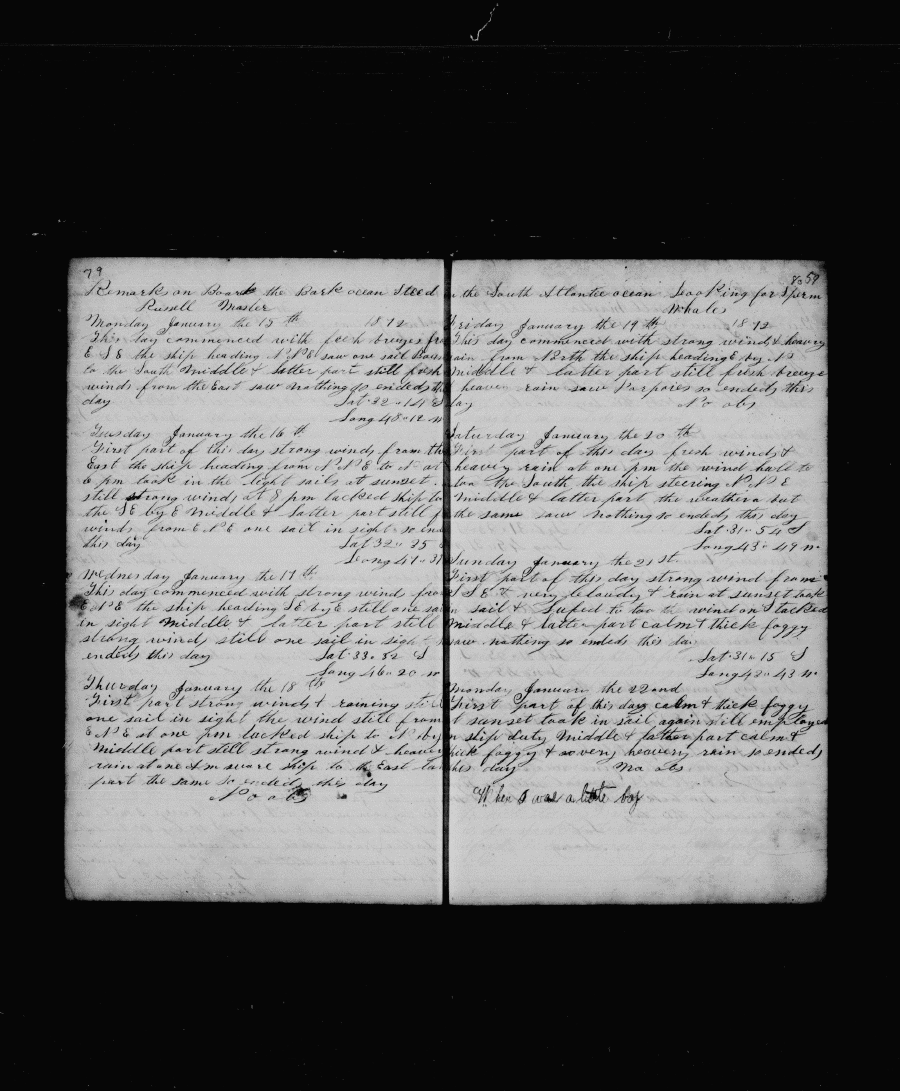 79
Remarks on Board the Bark ocean Steed
Russell Master
Monday January the 15 th 1872
This day commenced with fresh breezes fr
E S E the ship heading N N E saw one sail
to the South Middle & latter part still fresh
winds from the East saw nothing so ended th
day Lat 32 o 14 S
Long 48 o 12 w
Tuesday January the 16 th
First part of this day strong winds from the
East the ship heading from N N E to N at
6 pm took in the light sails at sunset
still strong winds at 8 pm tacked ship to
the S E by E Middle & latter part still f
winds from E N E one sail in sight so en
this day Lat 32 o 35 S
Long 47 o 31
Wednesday January the 17 th
This day commenced with strong winds fro
E N E the ship heading S E by E still one sa
in sight Middle & latter part still
strong winds still one sail in sight s
ended this day Lat 33 o 52 S
Long 46 o 20 w
Thursday January the 18 th
First part strong winds & raining still
one sail in sight the wind still from
E N E at one pm tacked ship to N by
Middle part still strong wind & heavy
rain at one A m ship to the East la
part the same So ended this day
No obs
80 59
n the South Atlantic ocean Looking for Sperm
Whales
Friday January the 19 th 1872
This day commenced with strong winds & heavey
rain from North the ship heading E by N
Middle & latter part still fresh breeze
& heavey rain saw Porpoies so ended this
day No obs
Saturday January the 20 th
First part of this day fresh winds &
heavey rain at one pm the wind hald to
the South the ship steering N N E
Middle & latter part the weather but
the same saw nothing so ended this day
Lat 31 o 54 S
Long 43 o 49 w
Sunday January the 21 st
First part of this day strong wind from
S S E & very cloudy & rain at sunset took
in sail & to the wind on tacked
Middle & latter part calm & thick foggy
saw nothing so ended this day
Lat 31 o 15 S
Long 42 o 43 w
Monday January the 22 and
First part of this day calm & thick foggy
at sunset took in sail again still employed
in ship duty Middle & latter part calm &
thick foggy & so very heavey rain so ended
this day No obs
When I was a little boy